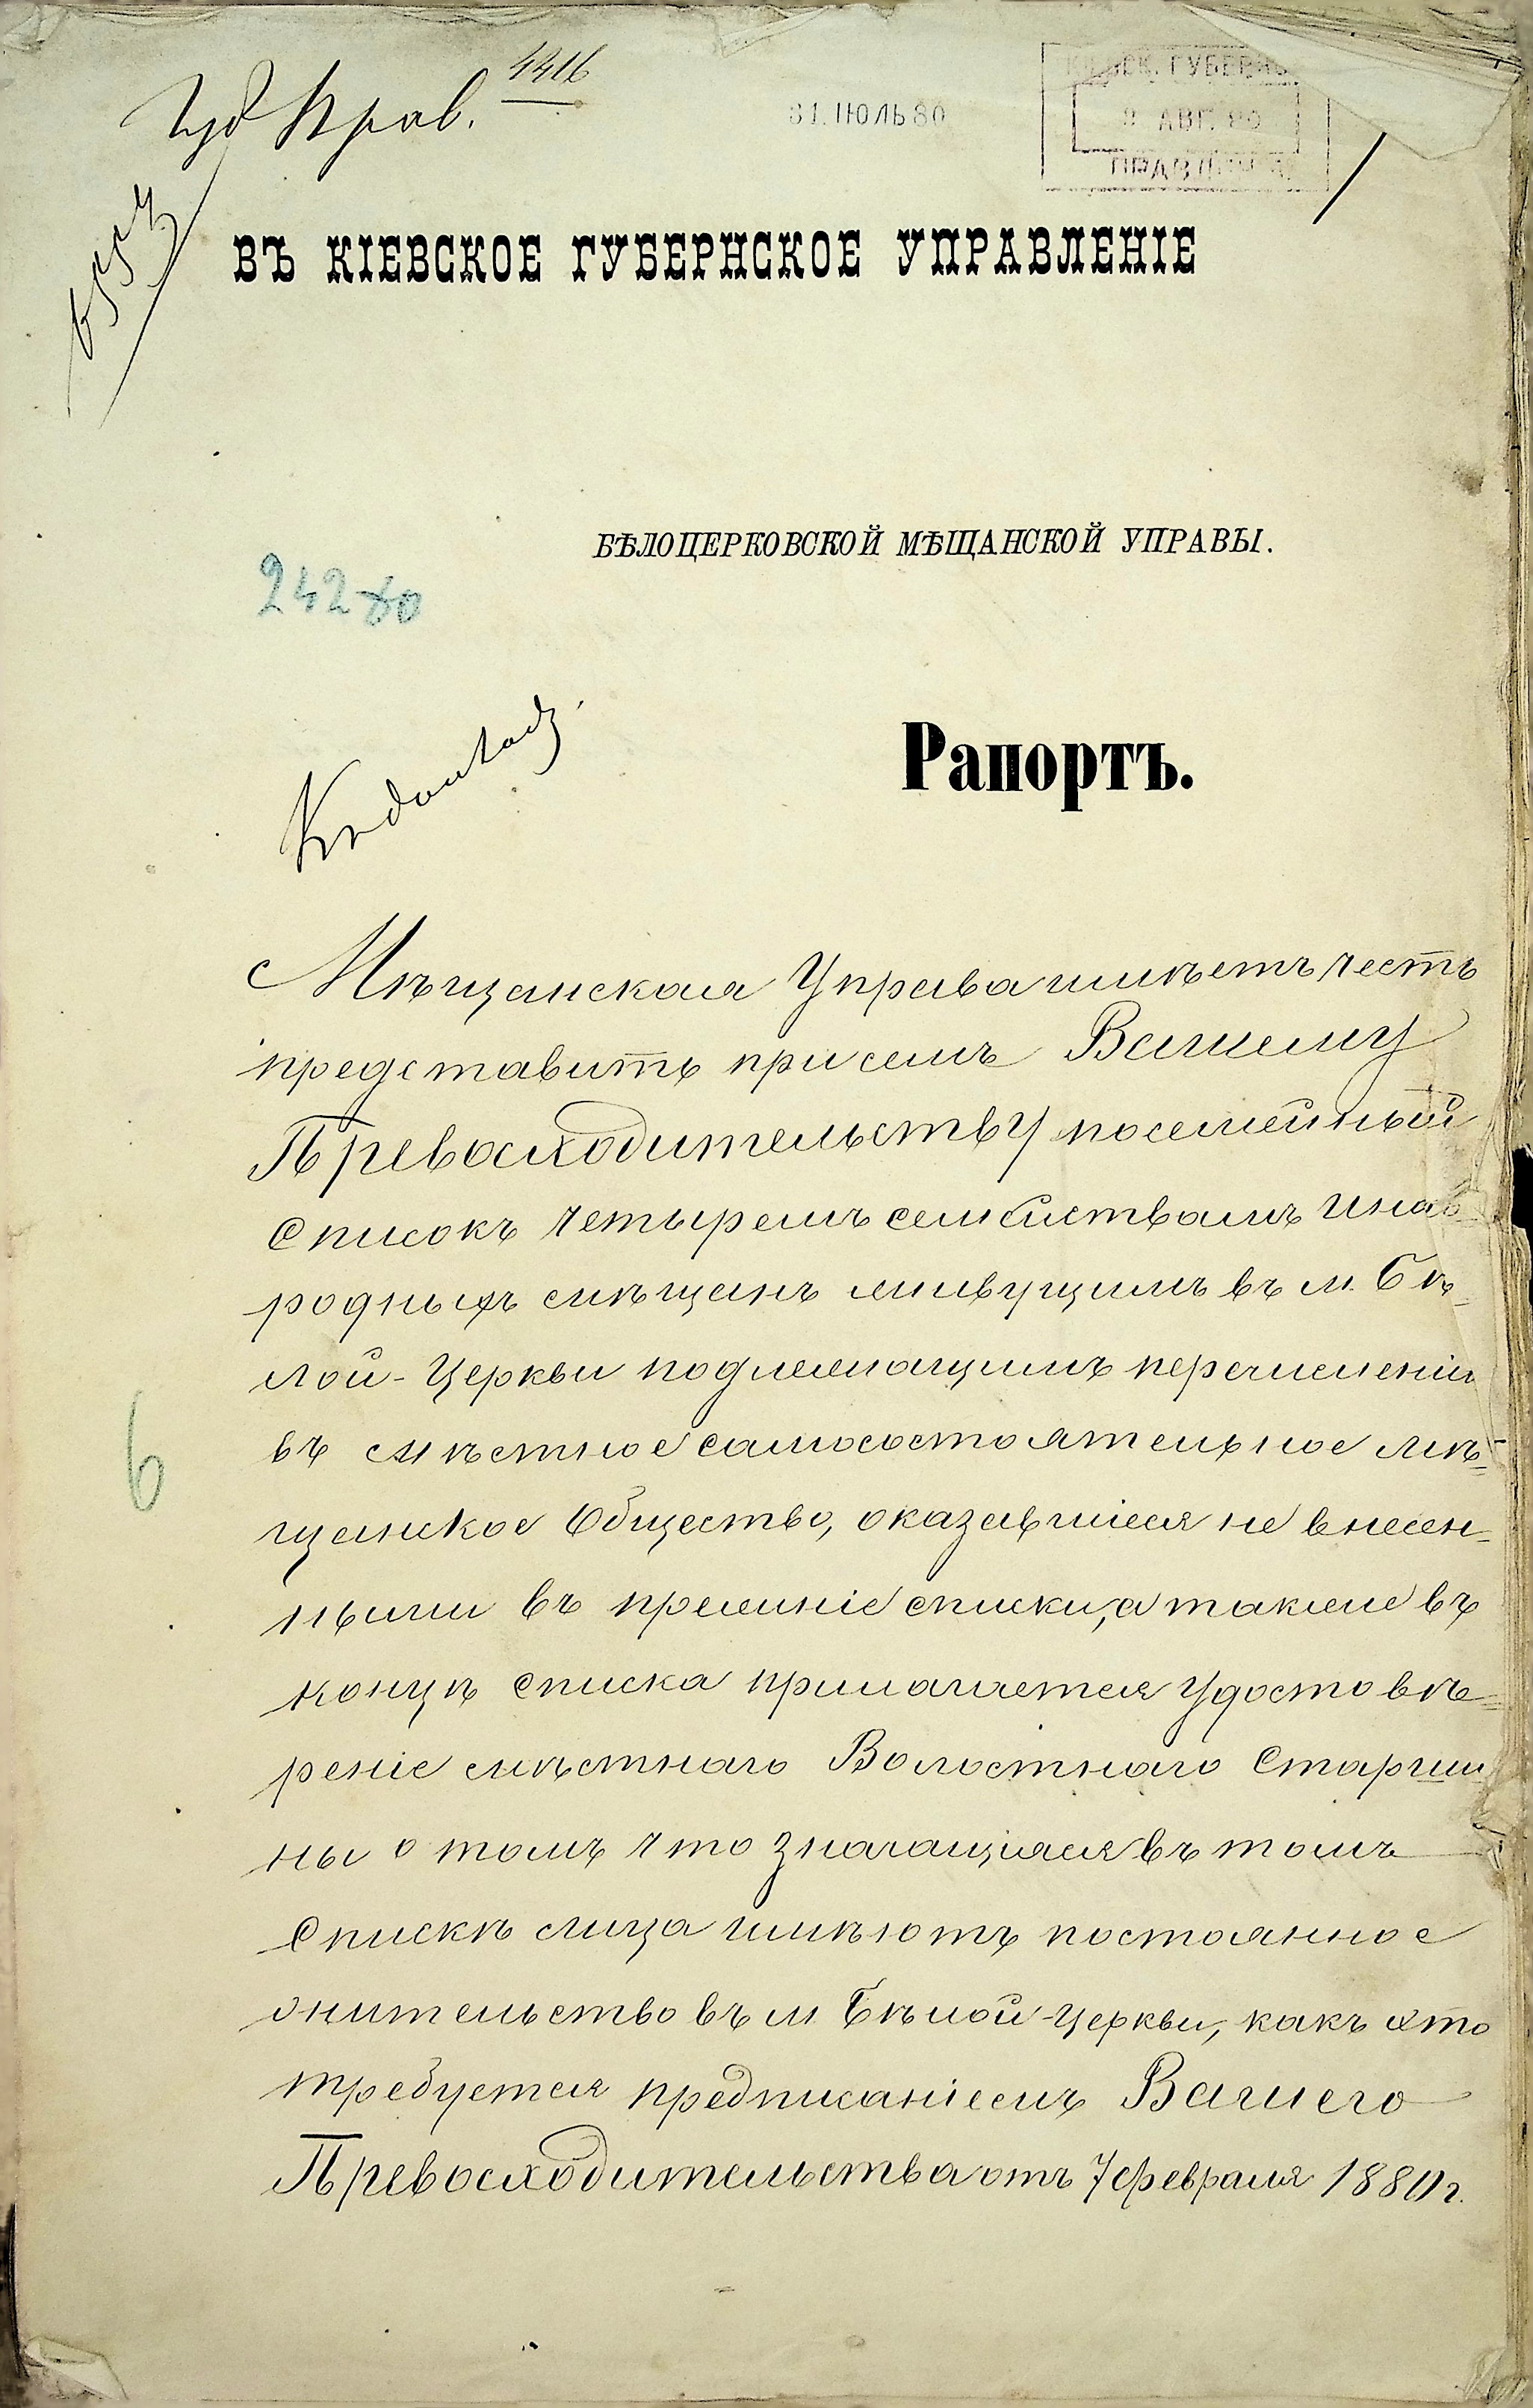 Губ Прав. 1416
31. ІЮЛЬ 80
КІЕВСК. ГУБЕРНС
2 АВГ. 80
ПРАВЛЕНІЕ
ВЪ КІЕВСКОЕ ГУБЕРНСКОЕ УПРАВЛЕНІЕ
БѢЛОЦЕРКОВСКОЙ МѢЩАНСКОЙ УПРАВЫ.
242 80
Рапортъ.
Мѣщанская Управа имѣетъ честь
представить при семъ Вашему
Превосходительству посемейный
списокъ четыремъ семействамъ инао
родныхъ мѣщанъ живущимъ въ м. Бѣ-
лой-Церкви подлежащимъ перечисленію
въ мѣстное самосостоятельное мѣ-
щанское Общество, оказавшіеся не внесен-
ными въ прежніе списки, а также въ
концѣ списка прилагается удостовѣ-
реніе мѣстнаго Волостнаго Старши
ны о томъ что значащіяся въ томъ
спискѣ лица имѣютъ постоянное
жительство въ м Бѣлой-Церкви, какъ это
требуется предписаніемъ Вашего
Превосходительства отъ 7 февраля 1880 г.
6